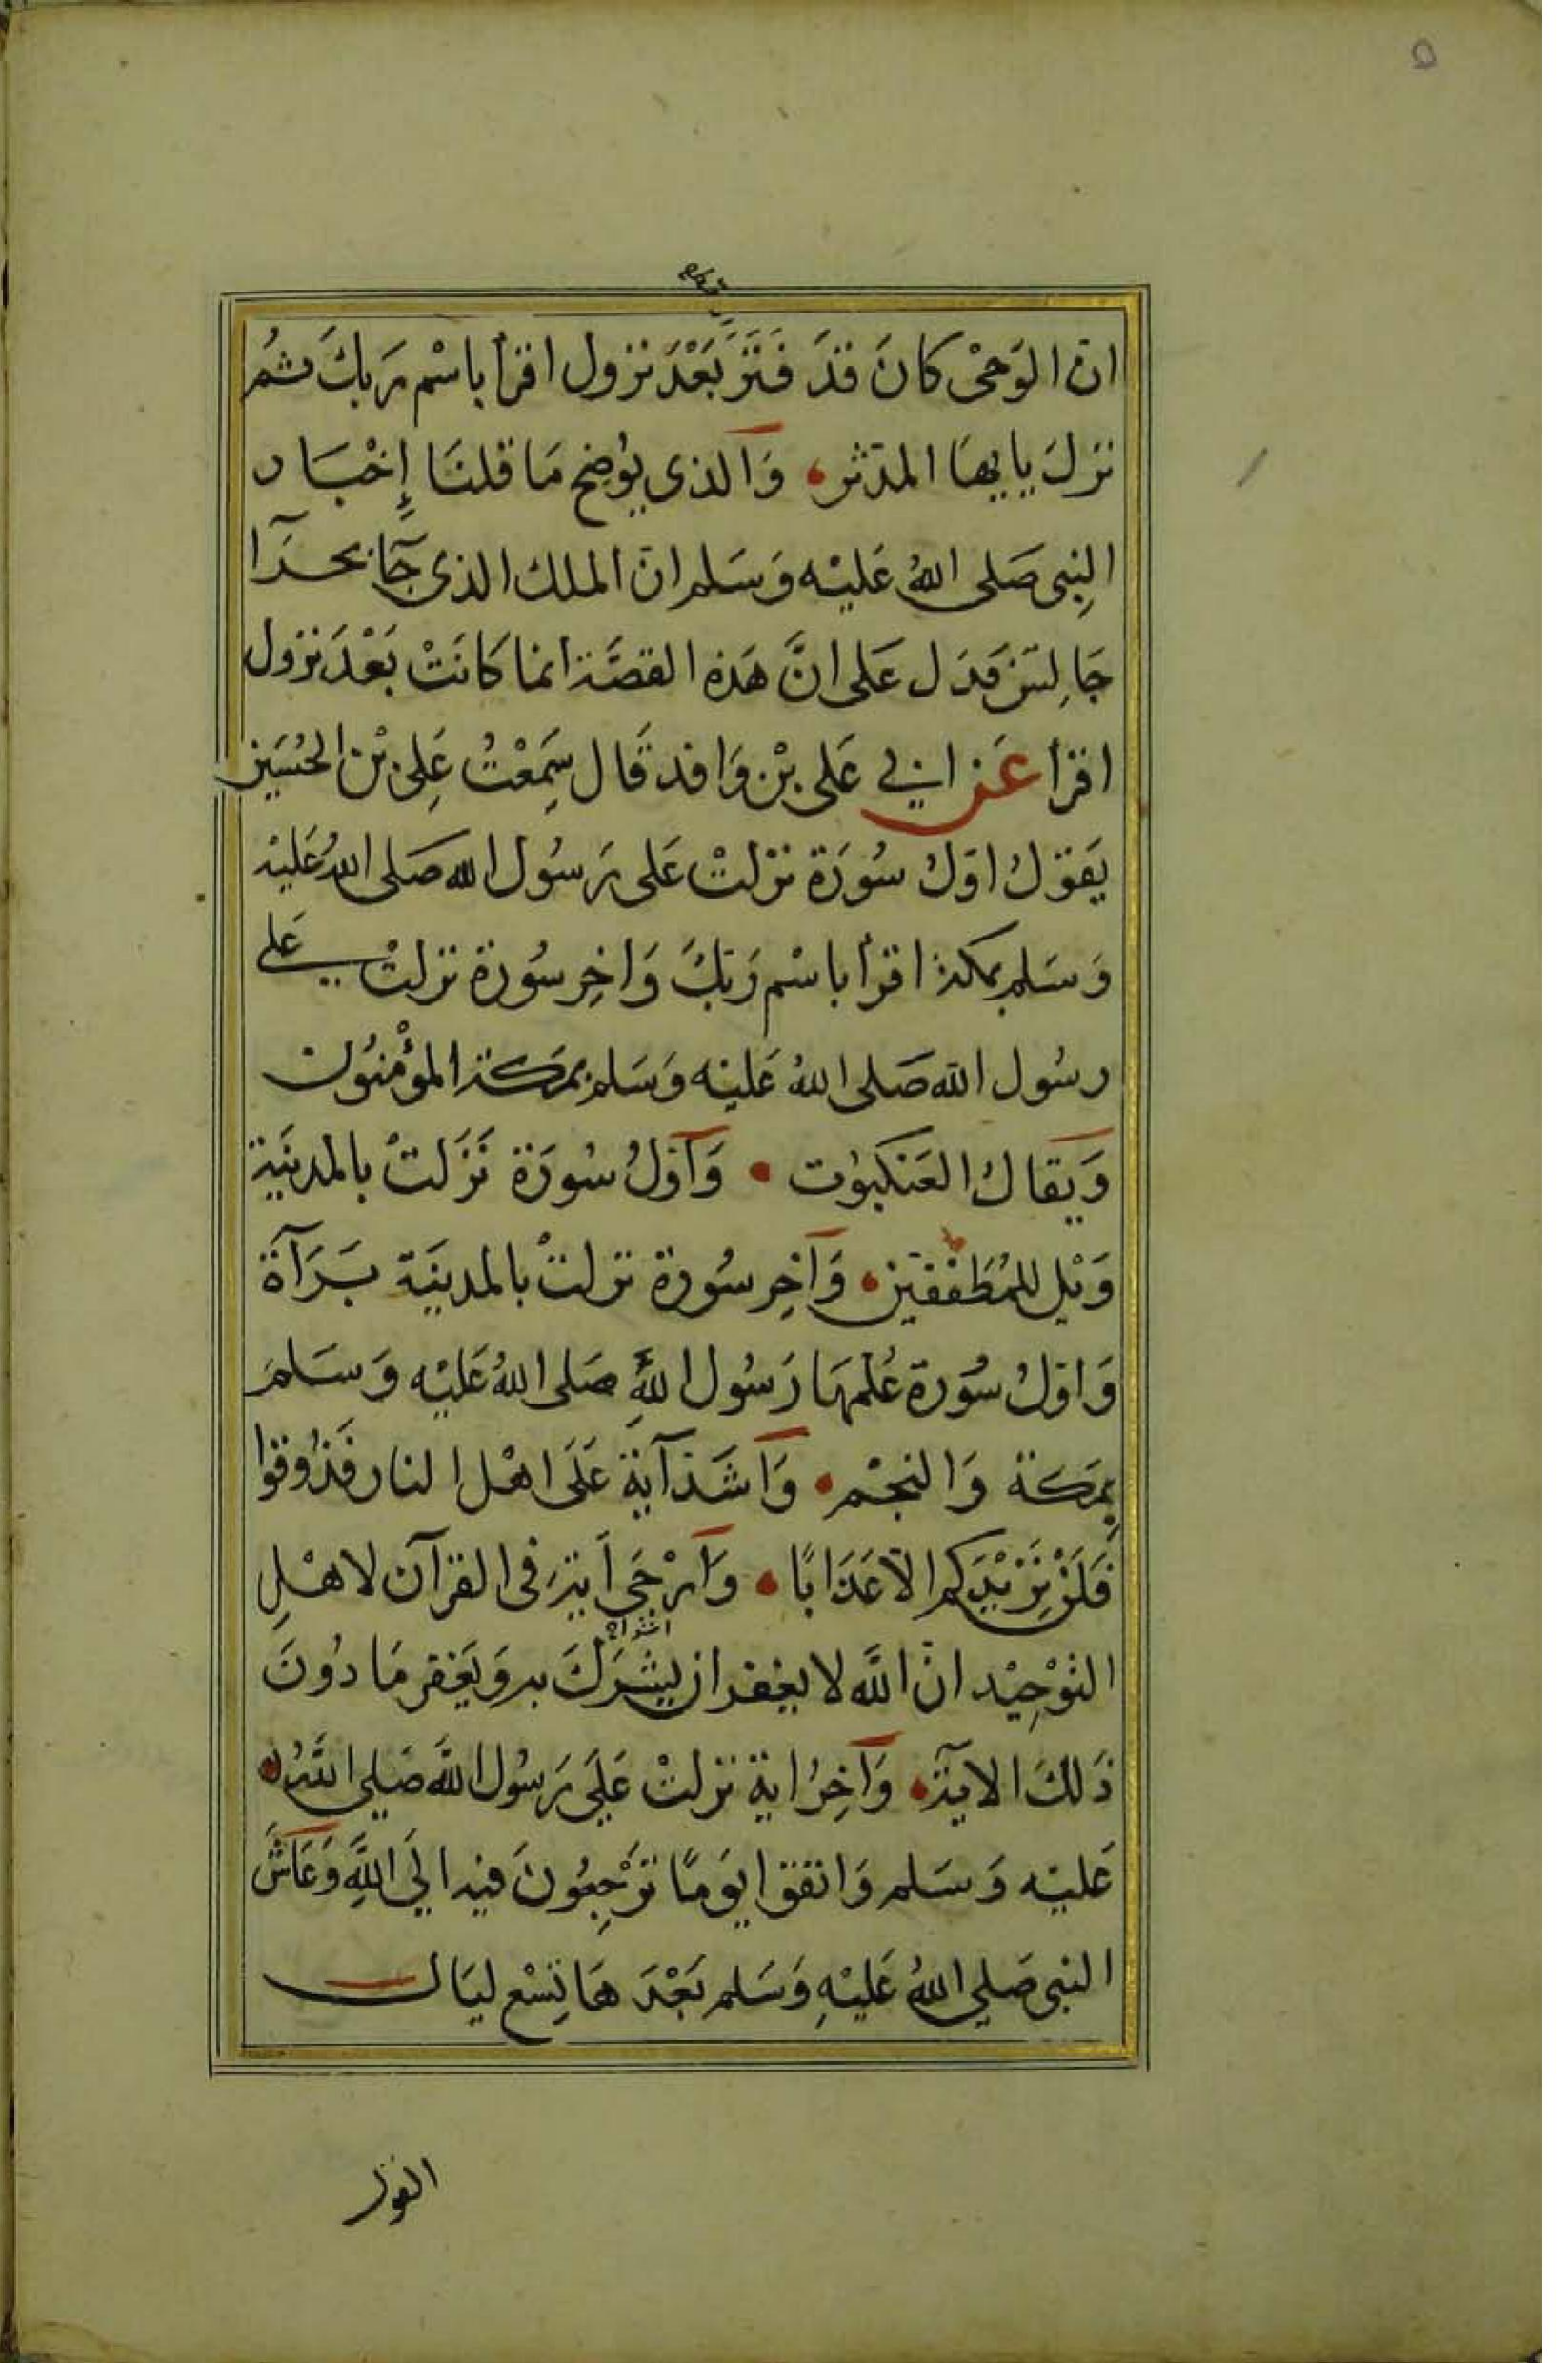 ٥
ان الوَحْى كانَ قدَ فَتَرَ بَعْدَ نزول اقرأ باسْم رَبكَ ثمُ
نزلَ يايهَا المدّثر وَالذى يوُضح مَا قلنَا إخْبَار
النِبى صَلى اللهُ عَليْه وَسَلم انّ الملك الذى جَآ بحرَآ
جَالِسَ فدَل عَلى انَّ هَذه القصَّة انما كانَتْ بَعْدَ نزول
اقرأ عَن ابي عَلى بْن وَاقد قَال سَمِعْتُ عَلِى بْن الحُسَين
يَقولُ اوّلُ سُورَة نزْلتْ عَلى رَسُول الله صَلى اللهُ عَليْه
وَسَلم بمكة اقرأ باسْم رَبكَ وَاخِر سُورة نزلتْ عَلى
رسُول الله صَلى اللهُ عَليْه وَسَلم بمَكة المؤْمنوُن
وَيقالُ العَنكبوُت وَاوّلُ سُورَة نَزَلتْ بالمدينَة
وَيْل للمُطَففين وَآخِر سُورة نزلتْ بالمدينَة بَرَآة
وَاوّلُ سُورة عُلمهَا رَسُول اللهِ صَلى اللهُ عَليْه وَسَلمَ
بِمَكة وَالنجْم وَاشَد آية عَلَى اهْل النار فَذُوقوا
فَلَنْ نَزْيْدَكم الا عَذابًا وَارْجَى اَية فى القرآن لاهْلِ
التوْحِيْد انّ اللَّه لا يغفر ان يشْرَكَ به وَيَغفر مَا دُونَ
ذَلكَ الاية وَآخِرُ اية نزلتْ عَلَى رَسُول اللَّه صَلى اللَّهُ
عَليْه وَسَلم وَاتقوا يوَمًا ترْجِعُونَ فيه الَى اللَّهِ وَعَاشَ
النبى صَلى اللهُ عَليْهِ وَسَلم بَعْدَ هَا تِسْع ليَال
القول